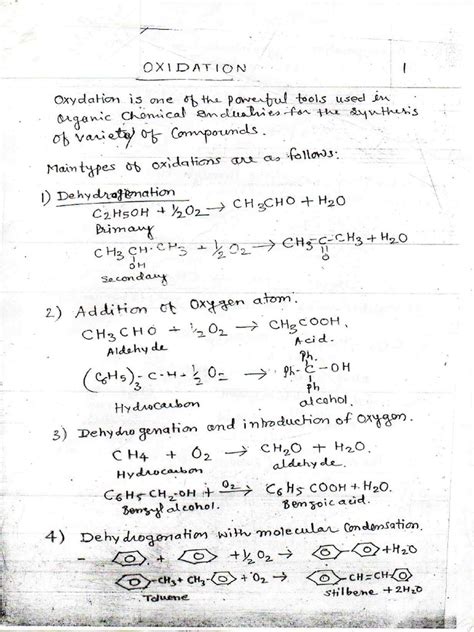 OXIDATION 1
Oxydation is one of the powerful tools used in
organic Chemical Industries for the synthesis
of variety of Compounds.
Main types of oxidations are as follows:
1) Dehydrogenation
C2H5OH + ½O2 → CH3CHO + H2O
Primary
CH3 CH-CH3 + ½O2 → CH3 C-CH3 + H2O
OH O
Secondary
2) Addition of Oxygen atom.
CH3CHO + ½O2 → CH3COOH.
Aldehyde Acid.
Ph.
(C6H5)3-C-H + ½O2 → Ph-C-OH
Ph
Hydrocarbon alcohol.
3) Dehydrogenation and introduction of Oxygen.
CH4 + O2 → CH2O + H2O.
Hydrocarbon aldehyde.
C6H5CH2-OH + O2 → C6H5COOH + H2O.
Benzyl alcohol. Benzoic acid.
4) Dehydrogenation with molecular Condensation.
- + + ½O2 → + H2O
-CH3 + CH3- + O2 → -CH=CH-
Toluene Stilbene + 2H2O